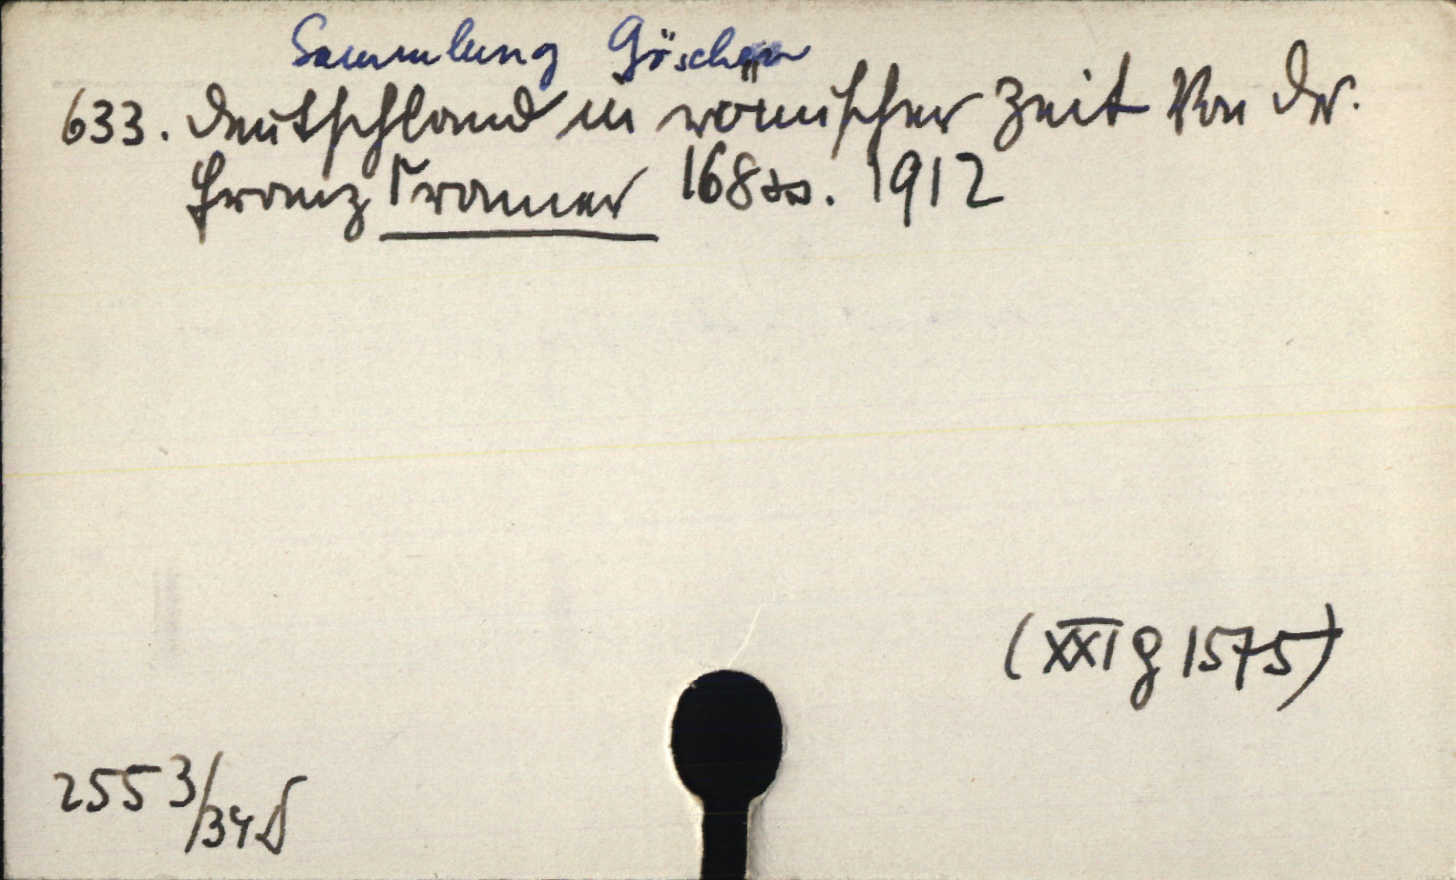 Sammlung Göschen
633. Deutschland in römischer Zeit Von Dr.
Franz Cramer 168 ss. 1912
(XXI g 1575)
2553/34